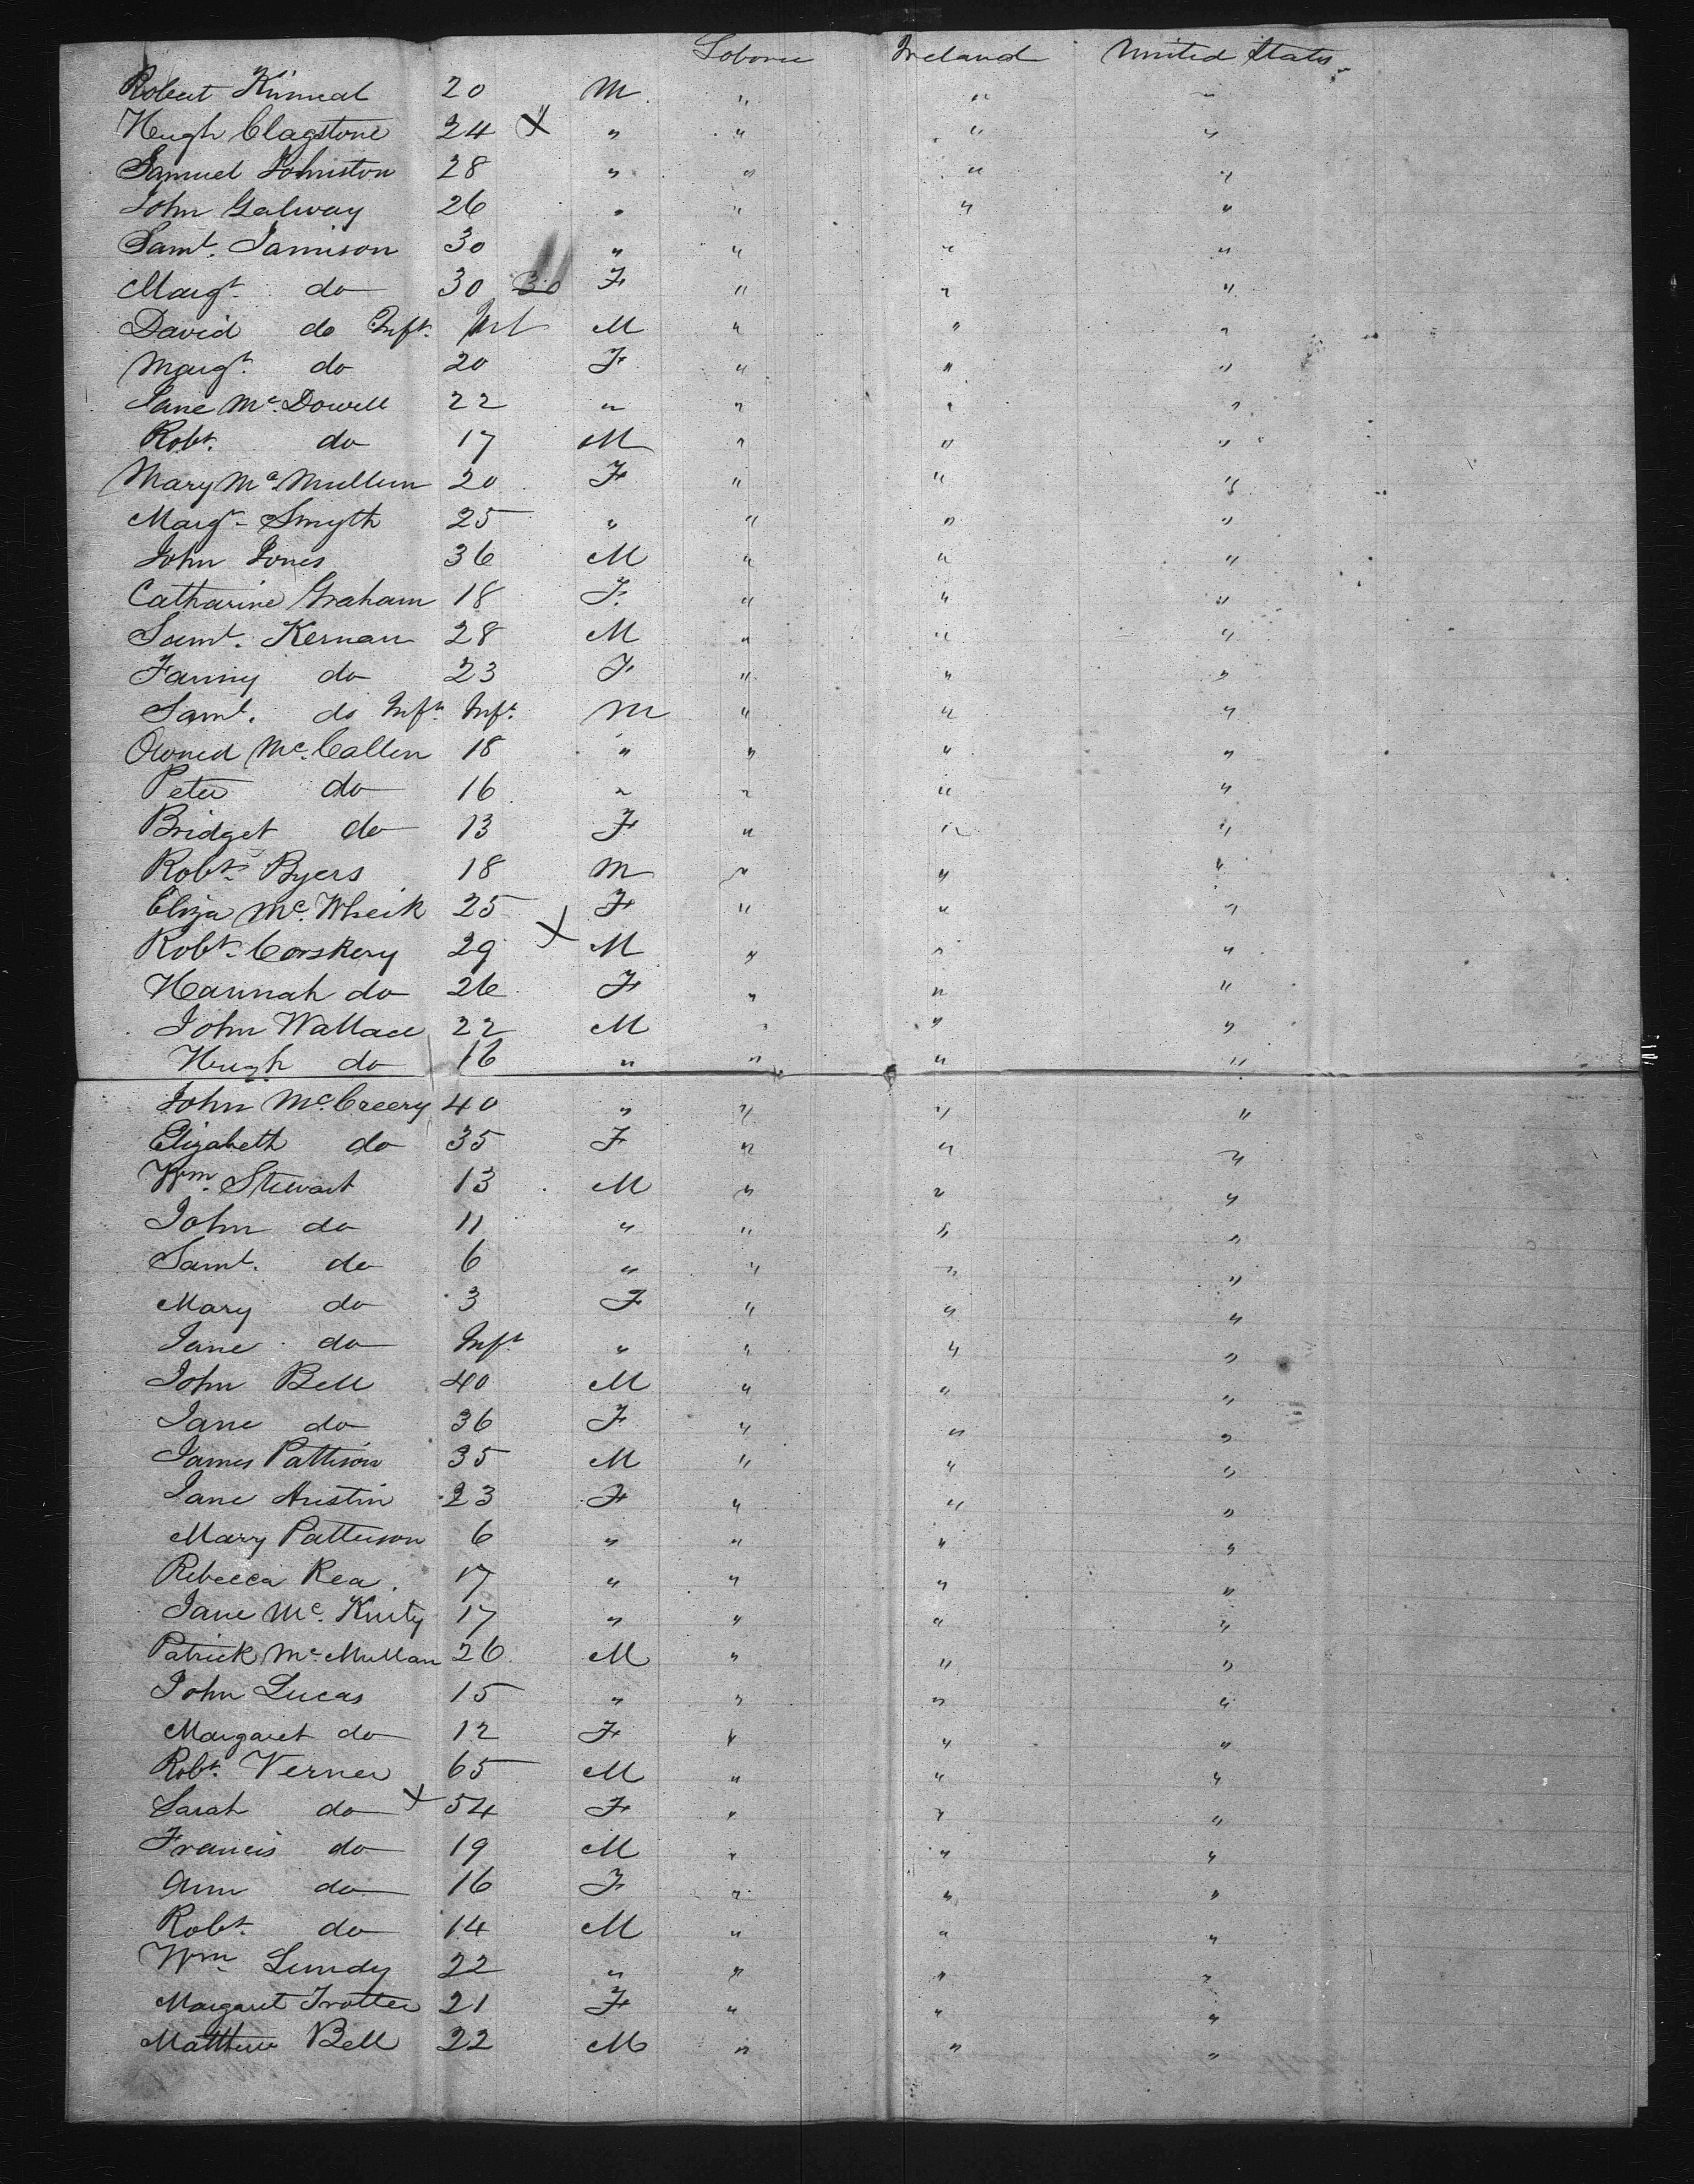 Laborer Ireland United States
Robert Kinneal 20 M " " "
Hugh Clagstone 24 X " " " "
Samuel Johnston 28 " " " "
John Galway 26 " " " "
Saml. Jamison 30 " " " "
Margt. do 30 30 F " " "
David do Inft. Inft M " " "
Margt. do 20 F " " "
Jane Mc. Dowell 22 " " " "
Robt. do 17 M " " "
Mary Mc Mullen 20 F " " "
Margt. Smyth 25 " " " "
John Jones 36 M " " "
Catharine Graham 18 F. " " "
Saml. Kernan 28 M " " "
Fanny do 23 F " " "
Saml. do Inft. Inft. M " " "
Owned Mc. Callen 18 " " " "
Peter do 16 " " " "
Bridget do 13 F " " "
Robt. Byers 18 M " " "
Eliza Mc. 25 F " " "
Robt. Corskery 29 X M " " "
Hannah do 26 F " " "
John Wallace 22 M " " "
Hugh do 16 " " " "
John Mc. Creery 40 " " " "
Elizabeth do 35 F " " "
Wm. Stewart 13 M " " "
John do 11 " " " "
Saml. do 6 " " " "
Mary do 3 F " " "
Jane do Inft. " " " "
John Bell 40 M " " "
Jane do 36 F " " "
James Pattison 35 M " " "
Jane Austin 23 F " " "
Mary Patterson 6 " " " "
Rebecca Rea. 17 " " " "
Jane Mc. Kinty 17 " " " "
Patrick Mc. Mullan 26 M " " "
John Lucas 15 " " " "
Margaret do 12 F " " "
Robt. Verner 65 M " " "
Sarah do X 54 F " " "
Francis do 19 M " " "
Ann do 16 F " " "
Robt. do 14 M " " "
Wm. Lundy 22 " " " "
Margaret Trotter 21 F " " "
Matthew Bell 22 M " " "